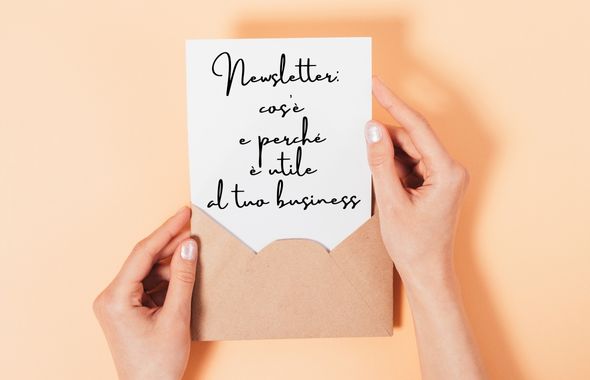 Newsletter:
cos'è
e perché
è utile
al tuo business